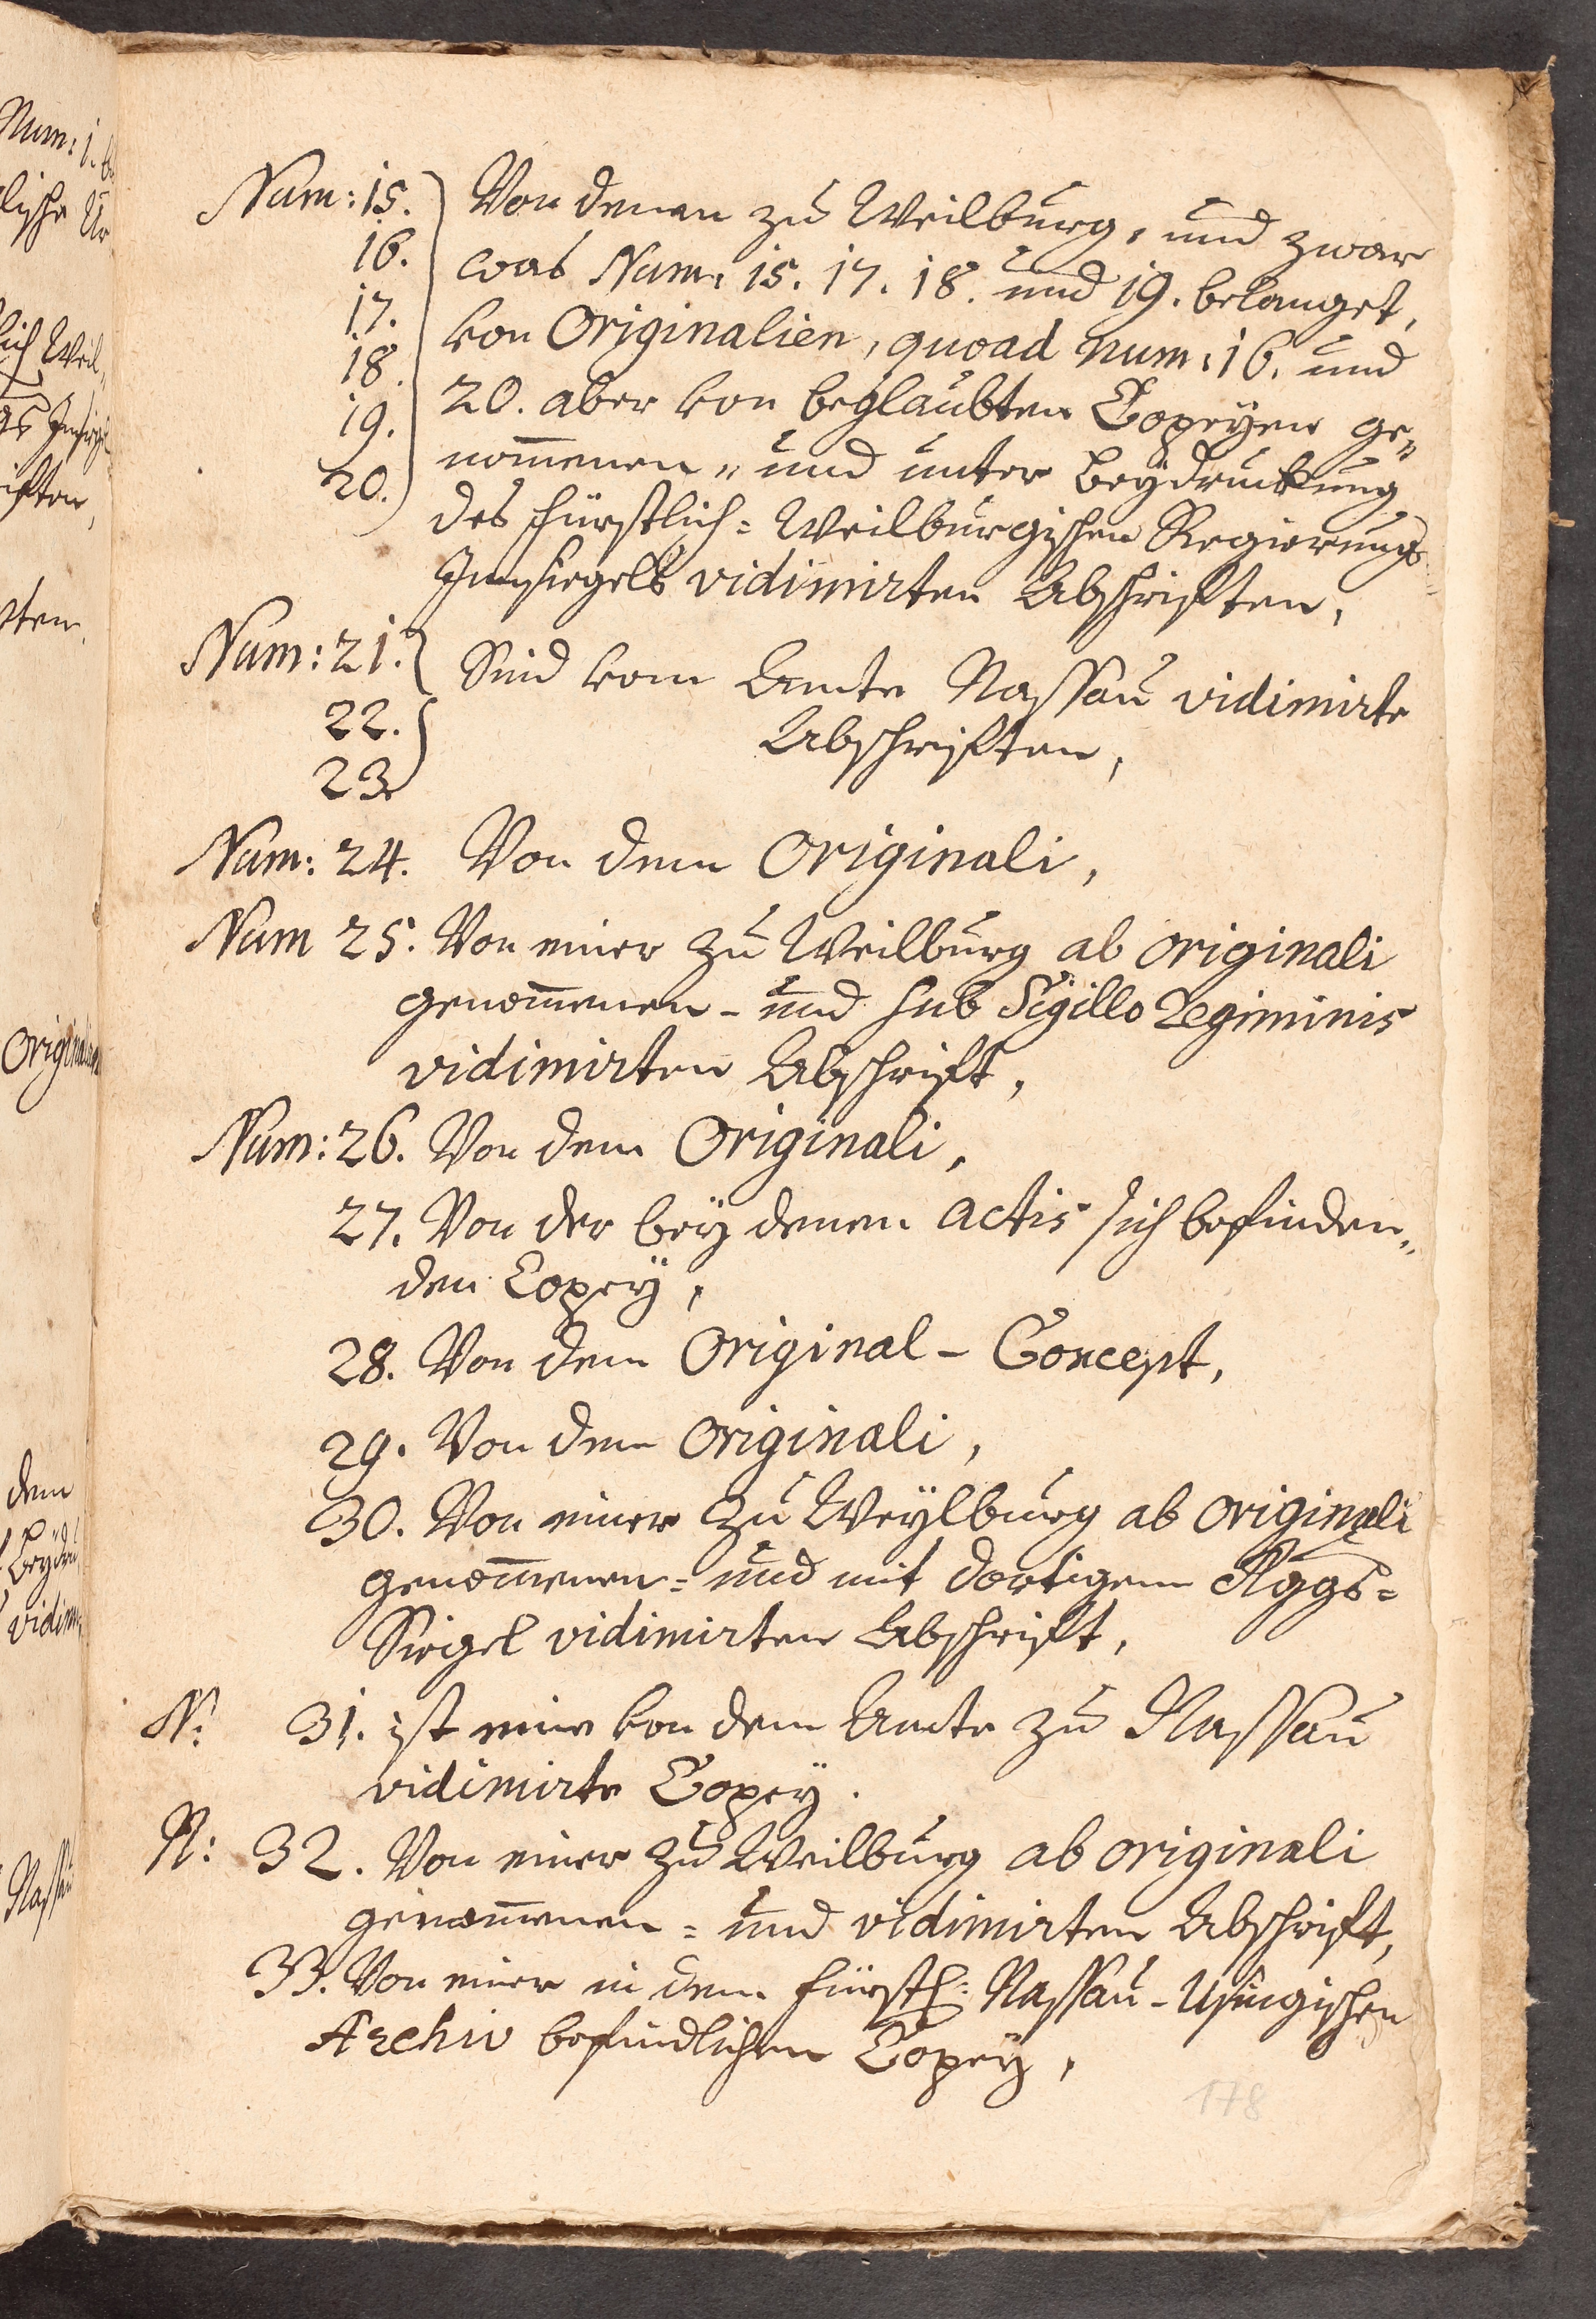 Num: 15. Von denen zu Weilburg, und zwar
16. was Num: 15. 17. 18. und 19. belanget,
17. von Originalien, quoad num: 16. und
18. 20. aber von beglaubten Copeyen ge„
19. nom̄enen „ und unter Beydruckung
20. des Fürstlich = Weilburgischen Regierungs
Innsiegels vidimirten Abschrifften,
Num: 21. Sind vom Ambte Nassau vidimirte
22. Abschrifften,
23.
Num: 24. Von dem Originali,
Num 25. Von einer zu Weilburg ab originali
genom̄enen - und sub Sigillo Regiminis
vidimirten Abschrifft,
Num: 26. Von dem Originali,
27. Von der bey denen actis sich befinden„
den Copey,
28. Von dem Original - Concept,
29. Von dem Originali,
30. Von einer zu Weylburg ab originali
genom̄enen = und mit dortigem Rggs =
Siegel vidimirten Abschrifft,
N: 31. ist eine von dem Ambte zu Nassau
vidimirte Copey.
N: 32. Von einer zu Weilburg ab originali
genom̄enen = und vidimirten Abschrifft,
33. Von einer in dem Fürstl: Nassau - Usingischen
Archiv befindlichen Copey,
178